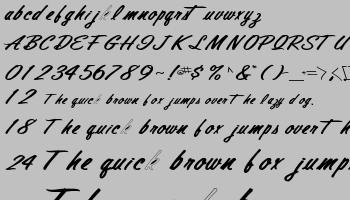 abcdefghijklmnopqrst uvwxyz
ABCDEFGHIJKLMNOPQRSTU
0123456789~!#$%^&*()-_+=>;:
12 The quick brown fox jumps over the lazy dog.
18 The quick brown fox jumps over th
24 The quick brown fox jump